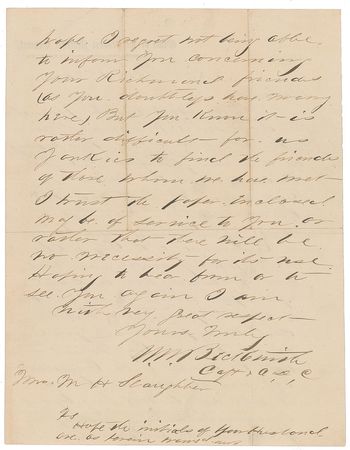 hope. I regret not being able
to inform you concerning
your Richmond friends
(as you doubtless have many
here) But you know it is
rather difficult for us
Yankies to find the friends
of those whom we have met
I trust the paper inclosed
may be of service to you or
rather that there will be
no necessity for its use.
Hoping to hear from or to
see you again I am
with very great respect
Yours Truly
Capt, C.S.
Mrs. M H Slaughter
hope the initials of your husband
are as herein